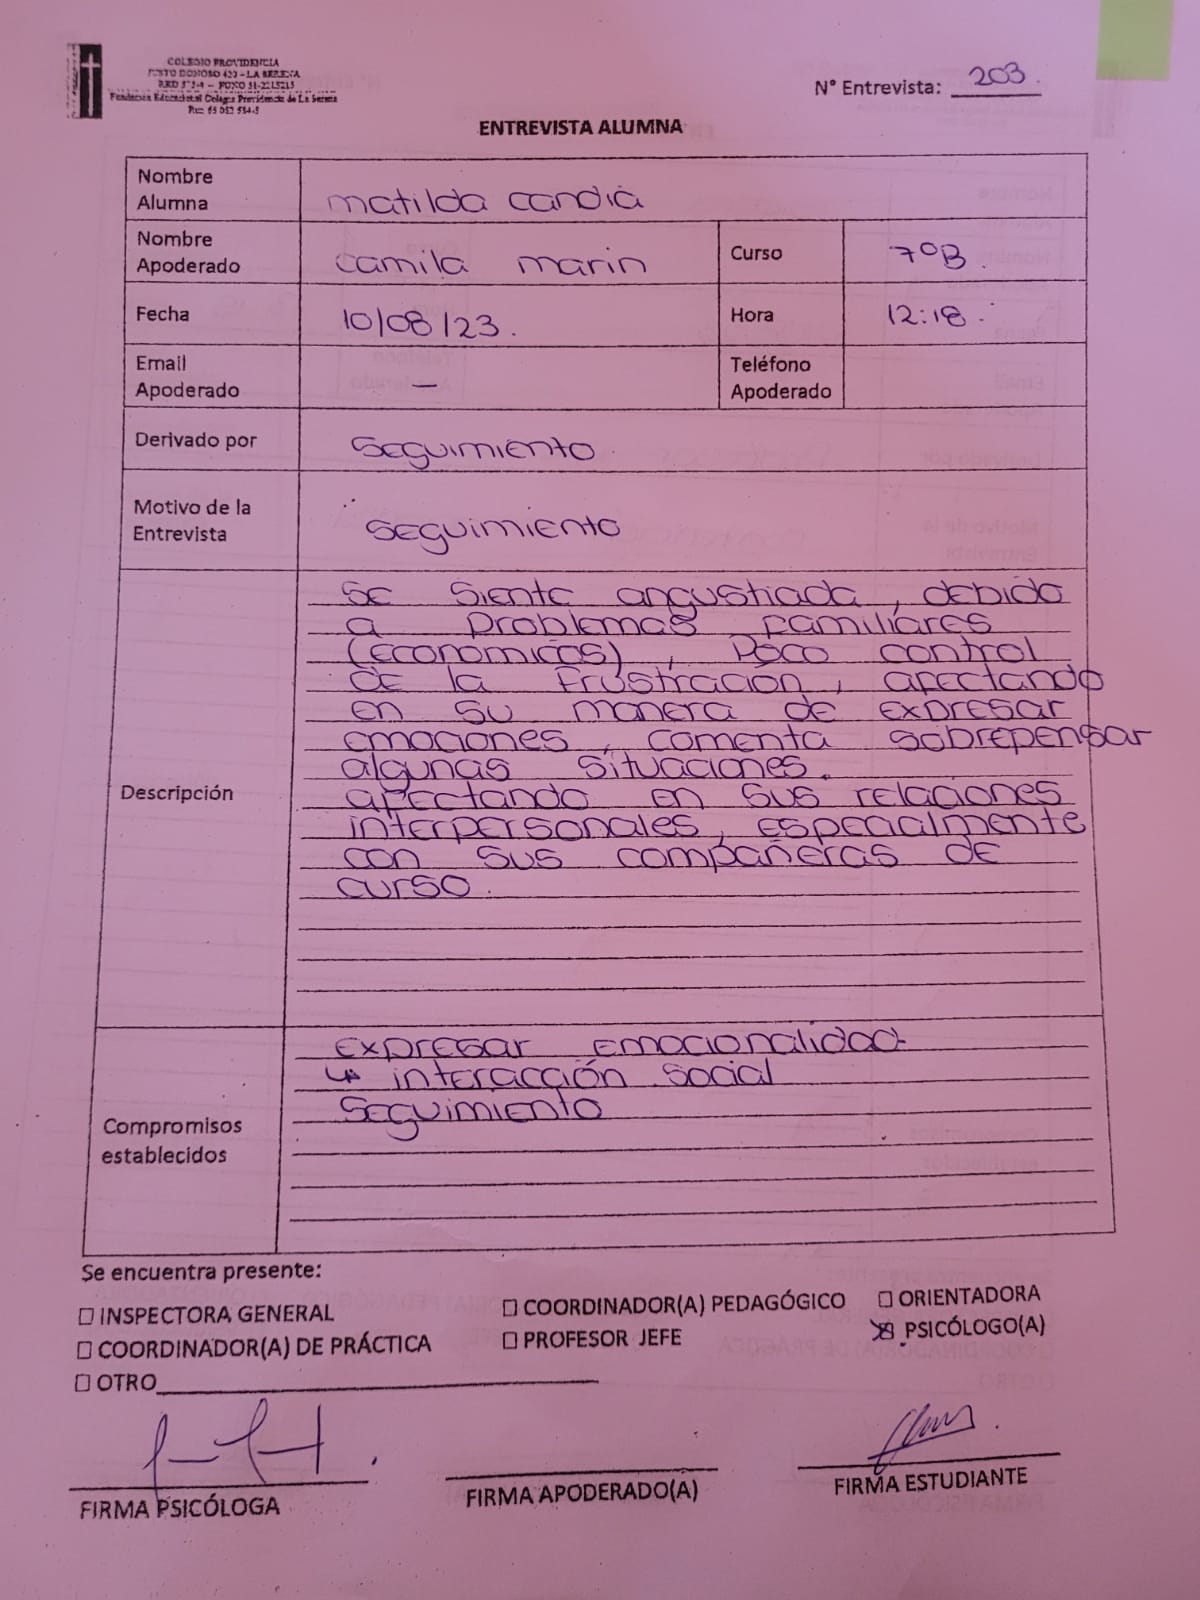 COLEGIO PROVIDENCIA
JUSTO DONOSO 420 - LA SERENA
Fundación Educacional Colegio Providencia de La Serena
N° Entrevista: 203.
ENTREVISTA ALUMNA
Nombre Alumna matilda candia
Nombre Apoderado camila marin Curso 7ºB.
Fecha 10/08/23. Hora 12:18.
Email Apoderado — Teléfono Apoderado
Derivado por seguimiento.
Motivo de la Entrevista seguimiento
Descripción
se siente angustiada, debido
a problemas familiares
(economicos), poco control
de la frustración, afectando
en su manera de expresar
emociones, comenta sobrepensar
algunas situaciones.
afectando en sus relaciones
interpersonales, especialmente
con sus compañeras de
curso.
Compromisos establecidos
expresar emocionalidad
↳ interacción social
seguimiento
Se encuentra presente:
☐ INSPECTORA GENERAL ☐ COORDINADOR(A) PEDAGÓGICO ☐ ORIENTADORA
☐ COORDINADOR(A) DE PRÁCTICA ☐ PROFESOR JEFE ☒ PSICÓLOGO(A)
☐ OTRO
FIRMA PSICÓLOGA FIRMA APODERADO(A) FIRMA ESTUDIANTE